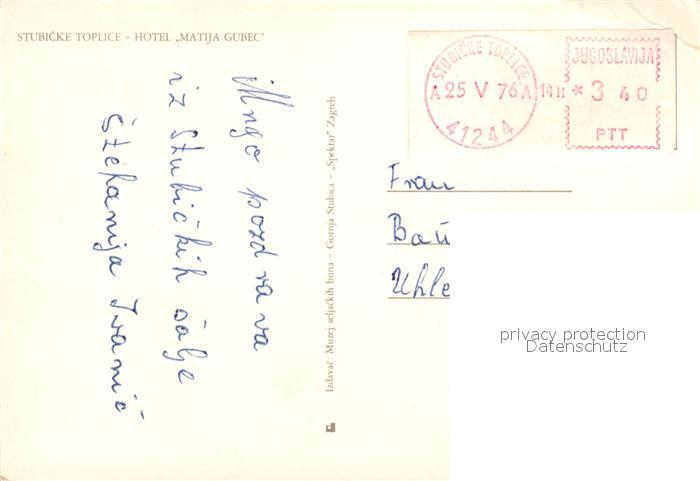 STUBIČKE TOPLICE - HOTEL „MATIJA GUBEC"
Mngo pozdrava
iz Stubičkih šalje
Štefanija Ivanić
Izdavač: Muzej seljačkih buna - Gornja Stubica - „Spektar" Zagreb
STUBIČKE TOPLICE
A 25 V 76 A 14H * 3 40
41244
JUGOSLAVIJA
PTT
Frau
Uhle
privacy protection
Datenschutz